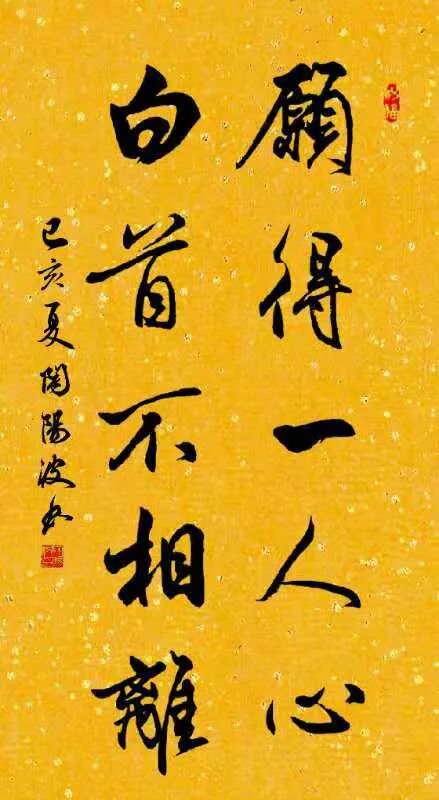 願得一人心
白首不相離
己亥夏陽波书